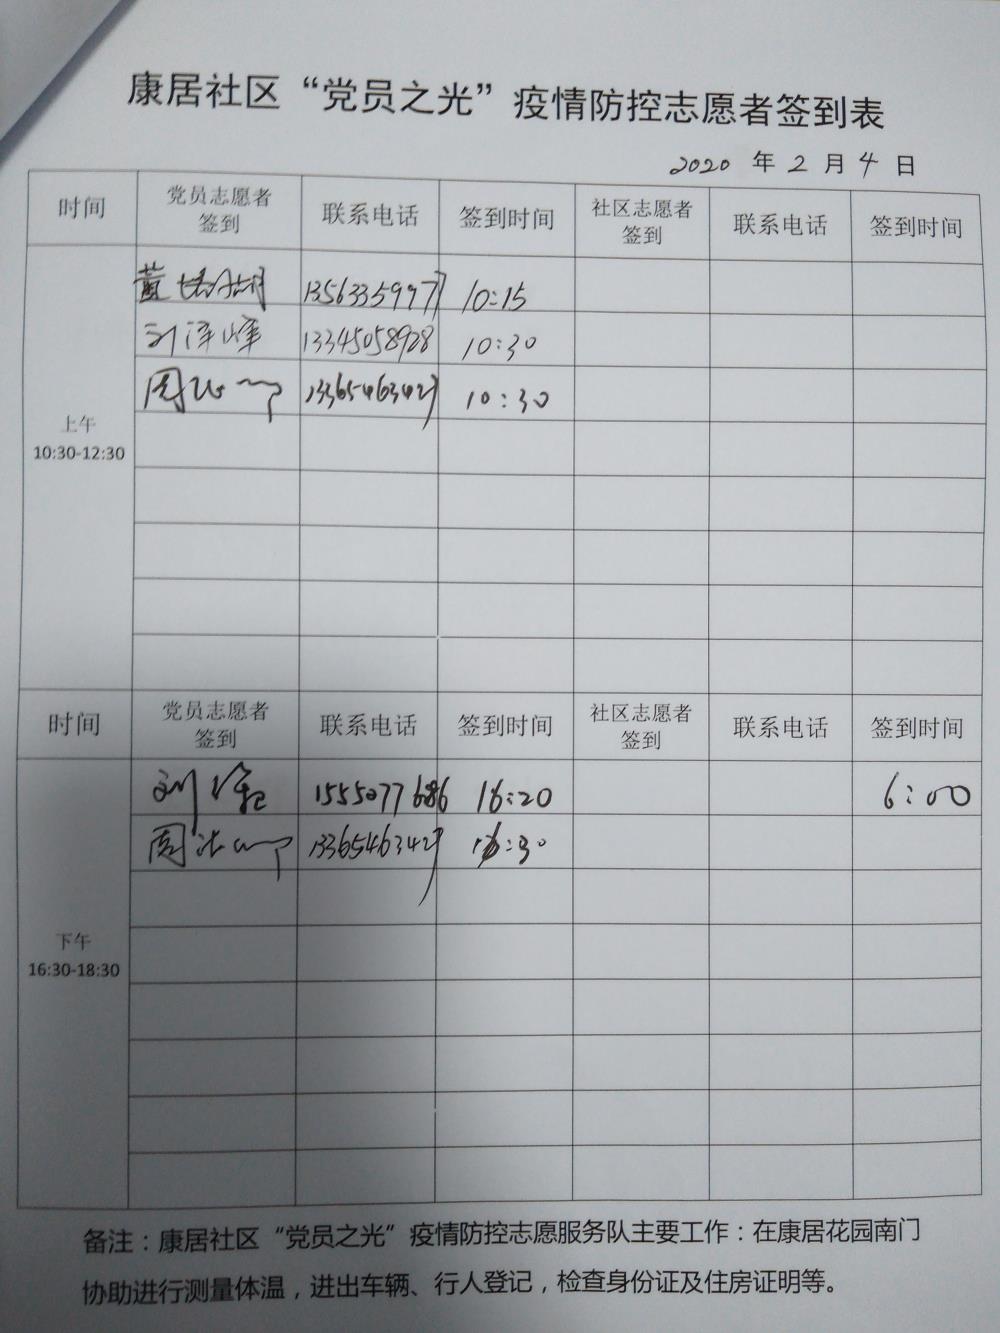 康居社区“党员之光”疫情防控志愿者签到表
2020 年 2 月 4 日
时间 党员志愿者签到 联系电话 签到时间 社区志愿者签到 联系电话 签到时间
上午
10:30-12:30
13563359977 10:15
刘泽峰 13345058928 10:30
周 13365463427 10:30
时间 党员志愿者签到 联系电话 签到时间 社区志愿者签到 联系电话 签到时间
下午
16:30-18:30
刘 15550777686 16:20 6:00
周 13365463427 16:30
备注：康居社区“党员之光”疫情防控志愿服务队主要工作：在康居花园南门
协助进行测量体温，进出车辆、行人登记，检查身份证及住房证明等。